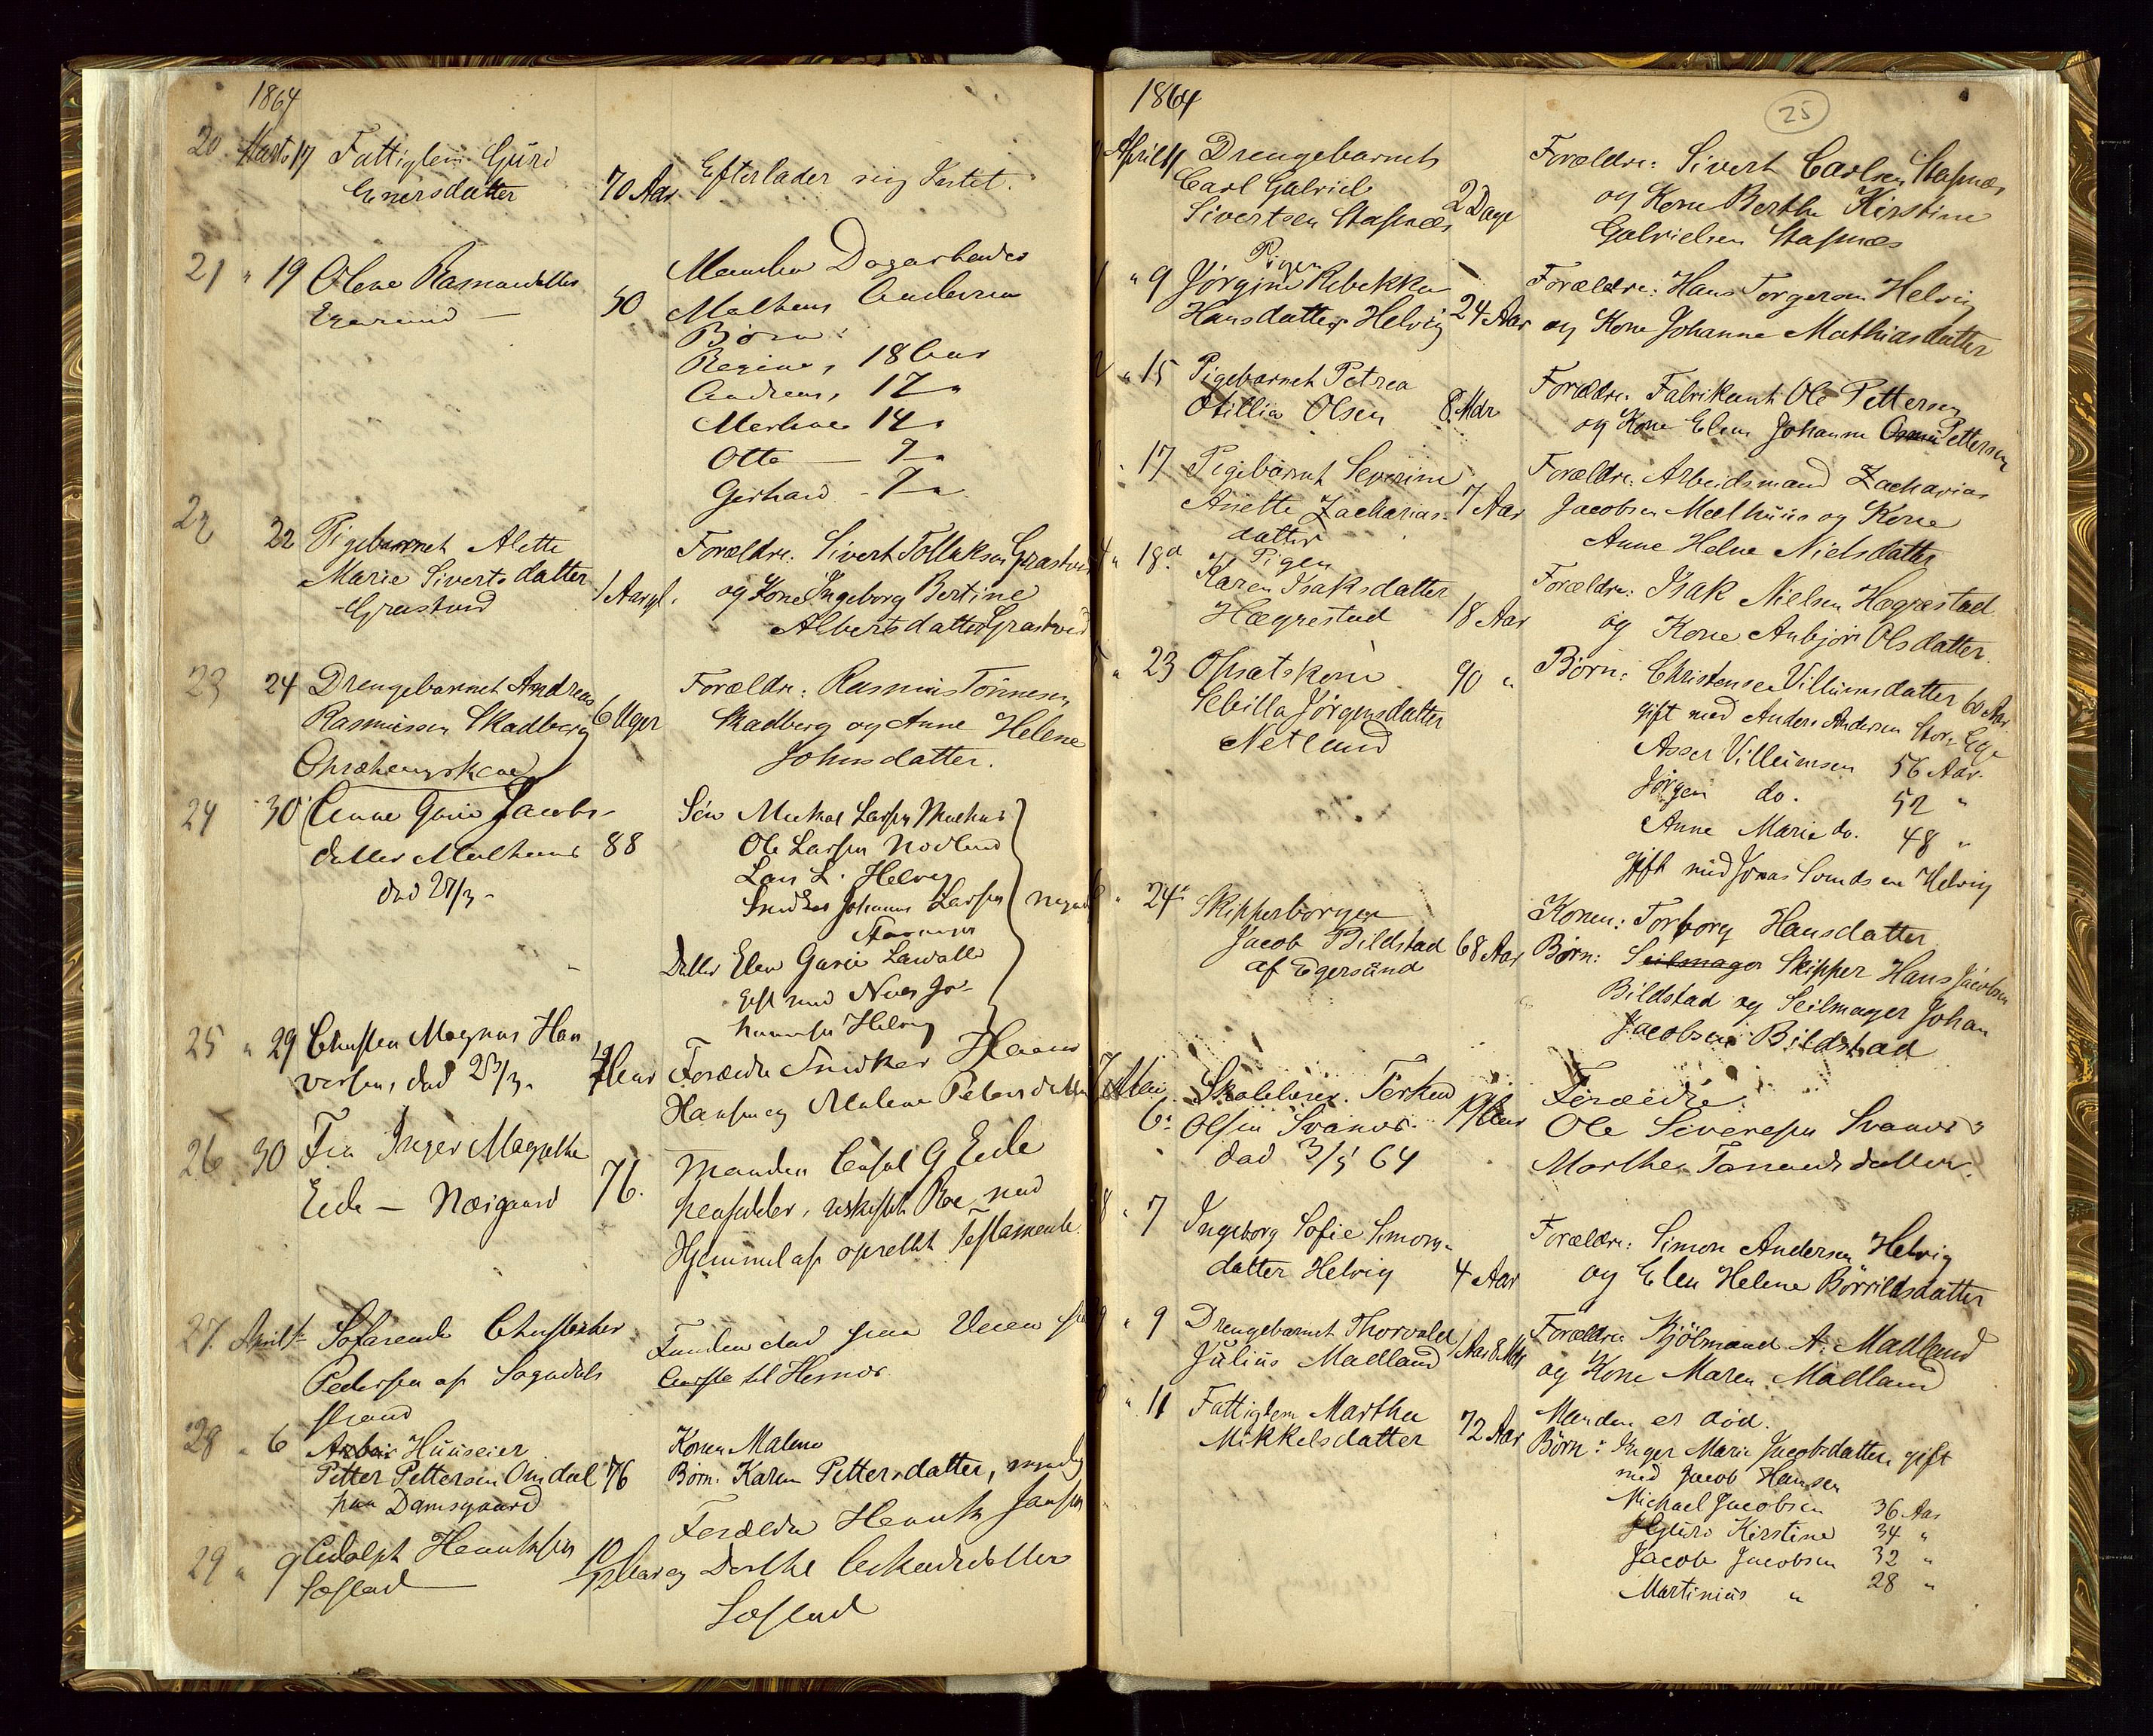 1864
20 Marts 17 Fattiglem Guri
Enersdatter 70 Aar Efterlader sig Intet.
21 " 19 Olene Rasmusdatter
Egersund — 50 Manden Dagarbeider
Matheus Andersen
Børn:
Regine, 18 Aar
Andreas, 17 "
Marthe 14 "
Otto — 7 "
Gerhard - 7 "
22 22 Pigebarnet Alette
Marie Sivertsdatter
Grastved 1 Aar gl.
Forældre: Sivert Tollaksen Grastved
og Kone Ingeborg Bertine
Albertsdatter Grastved
23 24 Drengebarnet Andreas
Rasmussen Skadberg 6 Uger
Forældre: Rasmus Tønnesen
Skadberg og Anne Helene
Johnsdatter.
24 30 Anne Guri Jacobs-
datter Mælhuus 88
død 27/3 -
Søn Mickal Larsen Mælhus
Ole Larsen Nodland
Lars L. Helvig
Snedker Johannes Larsen
Stavanger
Datter Elen Gurie Larsdatter
gift med Niels Jo-
hannesen Helvig
25 " 29 Christen Magnus Han
versen, død 23/3.
Forældre Snedker Hans
Hansen og Malene Petersdatter
26 30 Fru Inger Margrethe
Eide — Næsgaard 76.
Manden Consul G Eide
hensidder i uskiftet Boe med
Hjemmel af oprettet Testamente.
27. April 1 Søfarende Christopher
Pedersen af Sogndals
strand
Funden død paa Veien fra
til Hesnes
28 " 6 Huuseier
Petter Pettersen Omdal 76
paa Damsgaard
Konen Malene
Børn: Karen Pettersdatter, myndig
29 " 9 Adolph Henriksen
Løstad
Forældre Henrik Jansen
og Dorthe
Løstad
1864
25
April 1 Drengebarnet
Carl Gabriel
Sivertsen Stapnæs 2 Dage
Forældre: Sivert Carlsen Stapnæs
og Kone Berthe Kirstine
Gabrielsen Stapnæs
" 9 Pigen
Jørgine Rebekka
Hansdatter Helvig 24 Aar
Forældre: Hans Torgersen Helvig
og Kone Johanne Mathiasdatter
" 15 Pigebarnet Petrea
Otillia Olsen 8 Mdr
Forældre: Fabrikant Ole Pettersen
og Kone Elen Johanne Pettersen
" 17 Pigebarnet Severine
Anette Zacharias- 7 Aar
datter
Forældre: Arbeidsmand Zacharias
Jacobsen Mælhuus og Kone
Anne Helene Nielsdatter
" 18 Pigen
Karen Isaksdatter
Hægrestad 18 Aar
Forældre: Isak Nielsen Hægrestad
og Kone Anbjør Olsdatter.
" 23 Opsatskone 90 "
Sebilla Jørgensdatter
Netland
Børn: Christense Villumsdatter 60 Aar
gift med Anders Andersen Store Ege
Asser Villumsen 56 Aar.
Jørgen do. 52 "
Anne Marie do. 48 "
gift med Jonas Svendsen Helvig
" 24 Skipperborger
Jacob Bildstad 68 Aar
af Egersund
Konen: Torborg Hansdatter
Børn: Seilmager Skipper Hans Jacobsen
Bildstad og Seilmager Johan
Jacobsen Bildstad
7 Mai
6. Skolelærer Torkild
Olsen Svanes
død 3/5 64
Forældre:
Ole Sivertsen Svanes &
Marthe Tønnesdatter.
8 " 7 Ingeborg Sofie Simons-
datter Helvig 4 Aar
Forældre: Simon Andersen Helvig
og Elen Helene Børrildsdatter
9 " 9 Drengebarnet Thorvald
Julius Madland 1 Aar 8 Mdr
Forældre: Kjölmand A. Madland
og Kone Maren Madland
" 11 Fattiglem Martha
Mikkelsdatter 72 Aar
Manden er död.
Børn: Inger Marie Jacobsdatter, gift
med Jacob Hansen
Michael Jacobsen 36 Aar
Guro Kirstine 34 "
Jacob Jacobsen 32 "
Martinius " 28 "